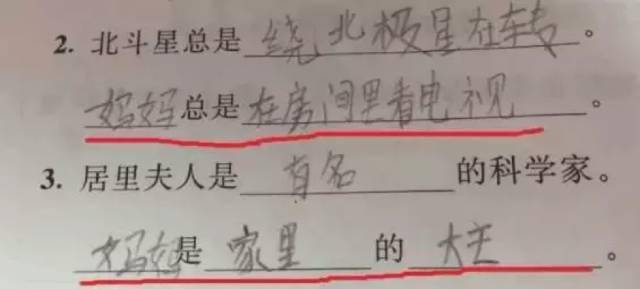 2. 北斗星总是绕北极星在转。
妈妈总是在房间里看电视。
3. 居里夫人是有名的科学家。
妈妈是家里的大王。